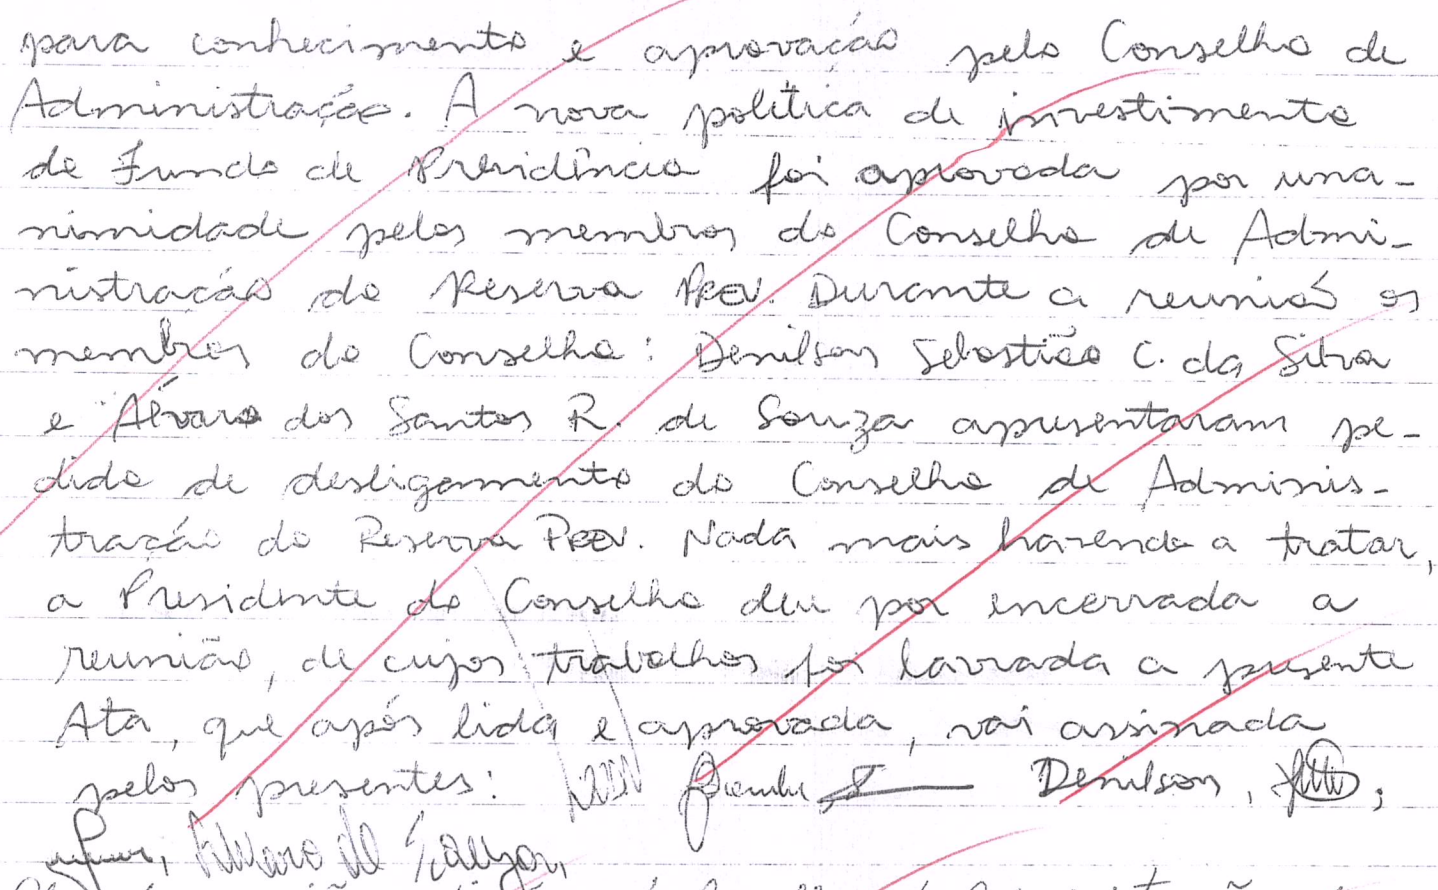 para conhecimento e aprovação pelo Conselho de
Administração. A nova política de investimento
do Fundo de Previdência foi aprovada por una-
nimidade pelos membros do Conselho de Admi-
nistração do Reserva Prev. Durante a reunião os
membros do Conselho: Denilson Sebastião C. da Silva
e Álvaro dos Santos R. de Souza apresentaram pe-
dido de desligamento do Conselho de Adminis-
tração do Reserva Prev. Nada mais havendo a tratar,
a Presidente do Conselho deu por encerrada a
reunião, de cujos trabalhos foi lavrada a presente
Ata, que após lida e aprovada, vai assinada
pelos presentes: Denilson,
Alvaro de